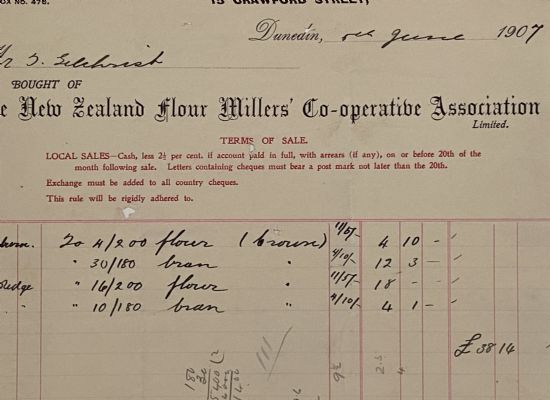 OX NO. 478.
15 CRAWFORD STREET,
Dunedin, June 1907
Gilchrist
BOUGHT OF
e New Zealand Flour Millers' Co-operative Association
Limited.
TERMS OF SALE.
LOCAL SALES—Cash, less 2½ per cent. if account paid in full, with arrears (if any), on or before 20th of the
month following sale. Letters containing cheques must bear a post mark not later than the 20th.
Exchange must be added to all country cheques.
This rule will be rigidly adhered to.
To 4/200 flour (brown) 4 10 -
" 30/180 bran " 4/10/- 12 3 -
" 16/200 flour " 18 - -
" 10/180 bran " 4/10/- 4 1 -
£ 38 14
111
180